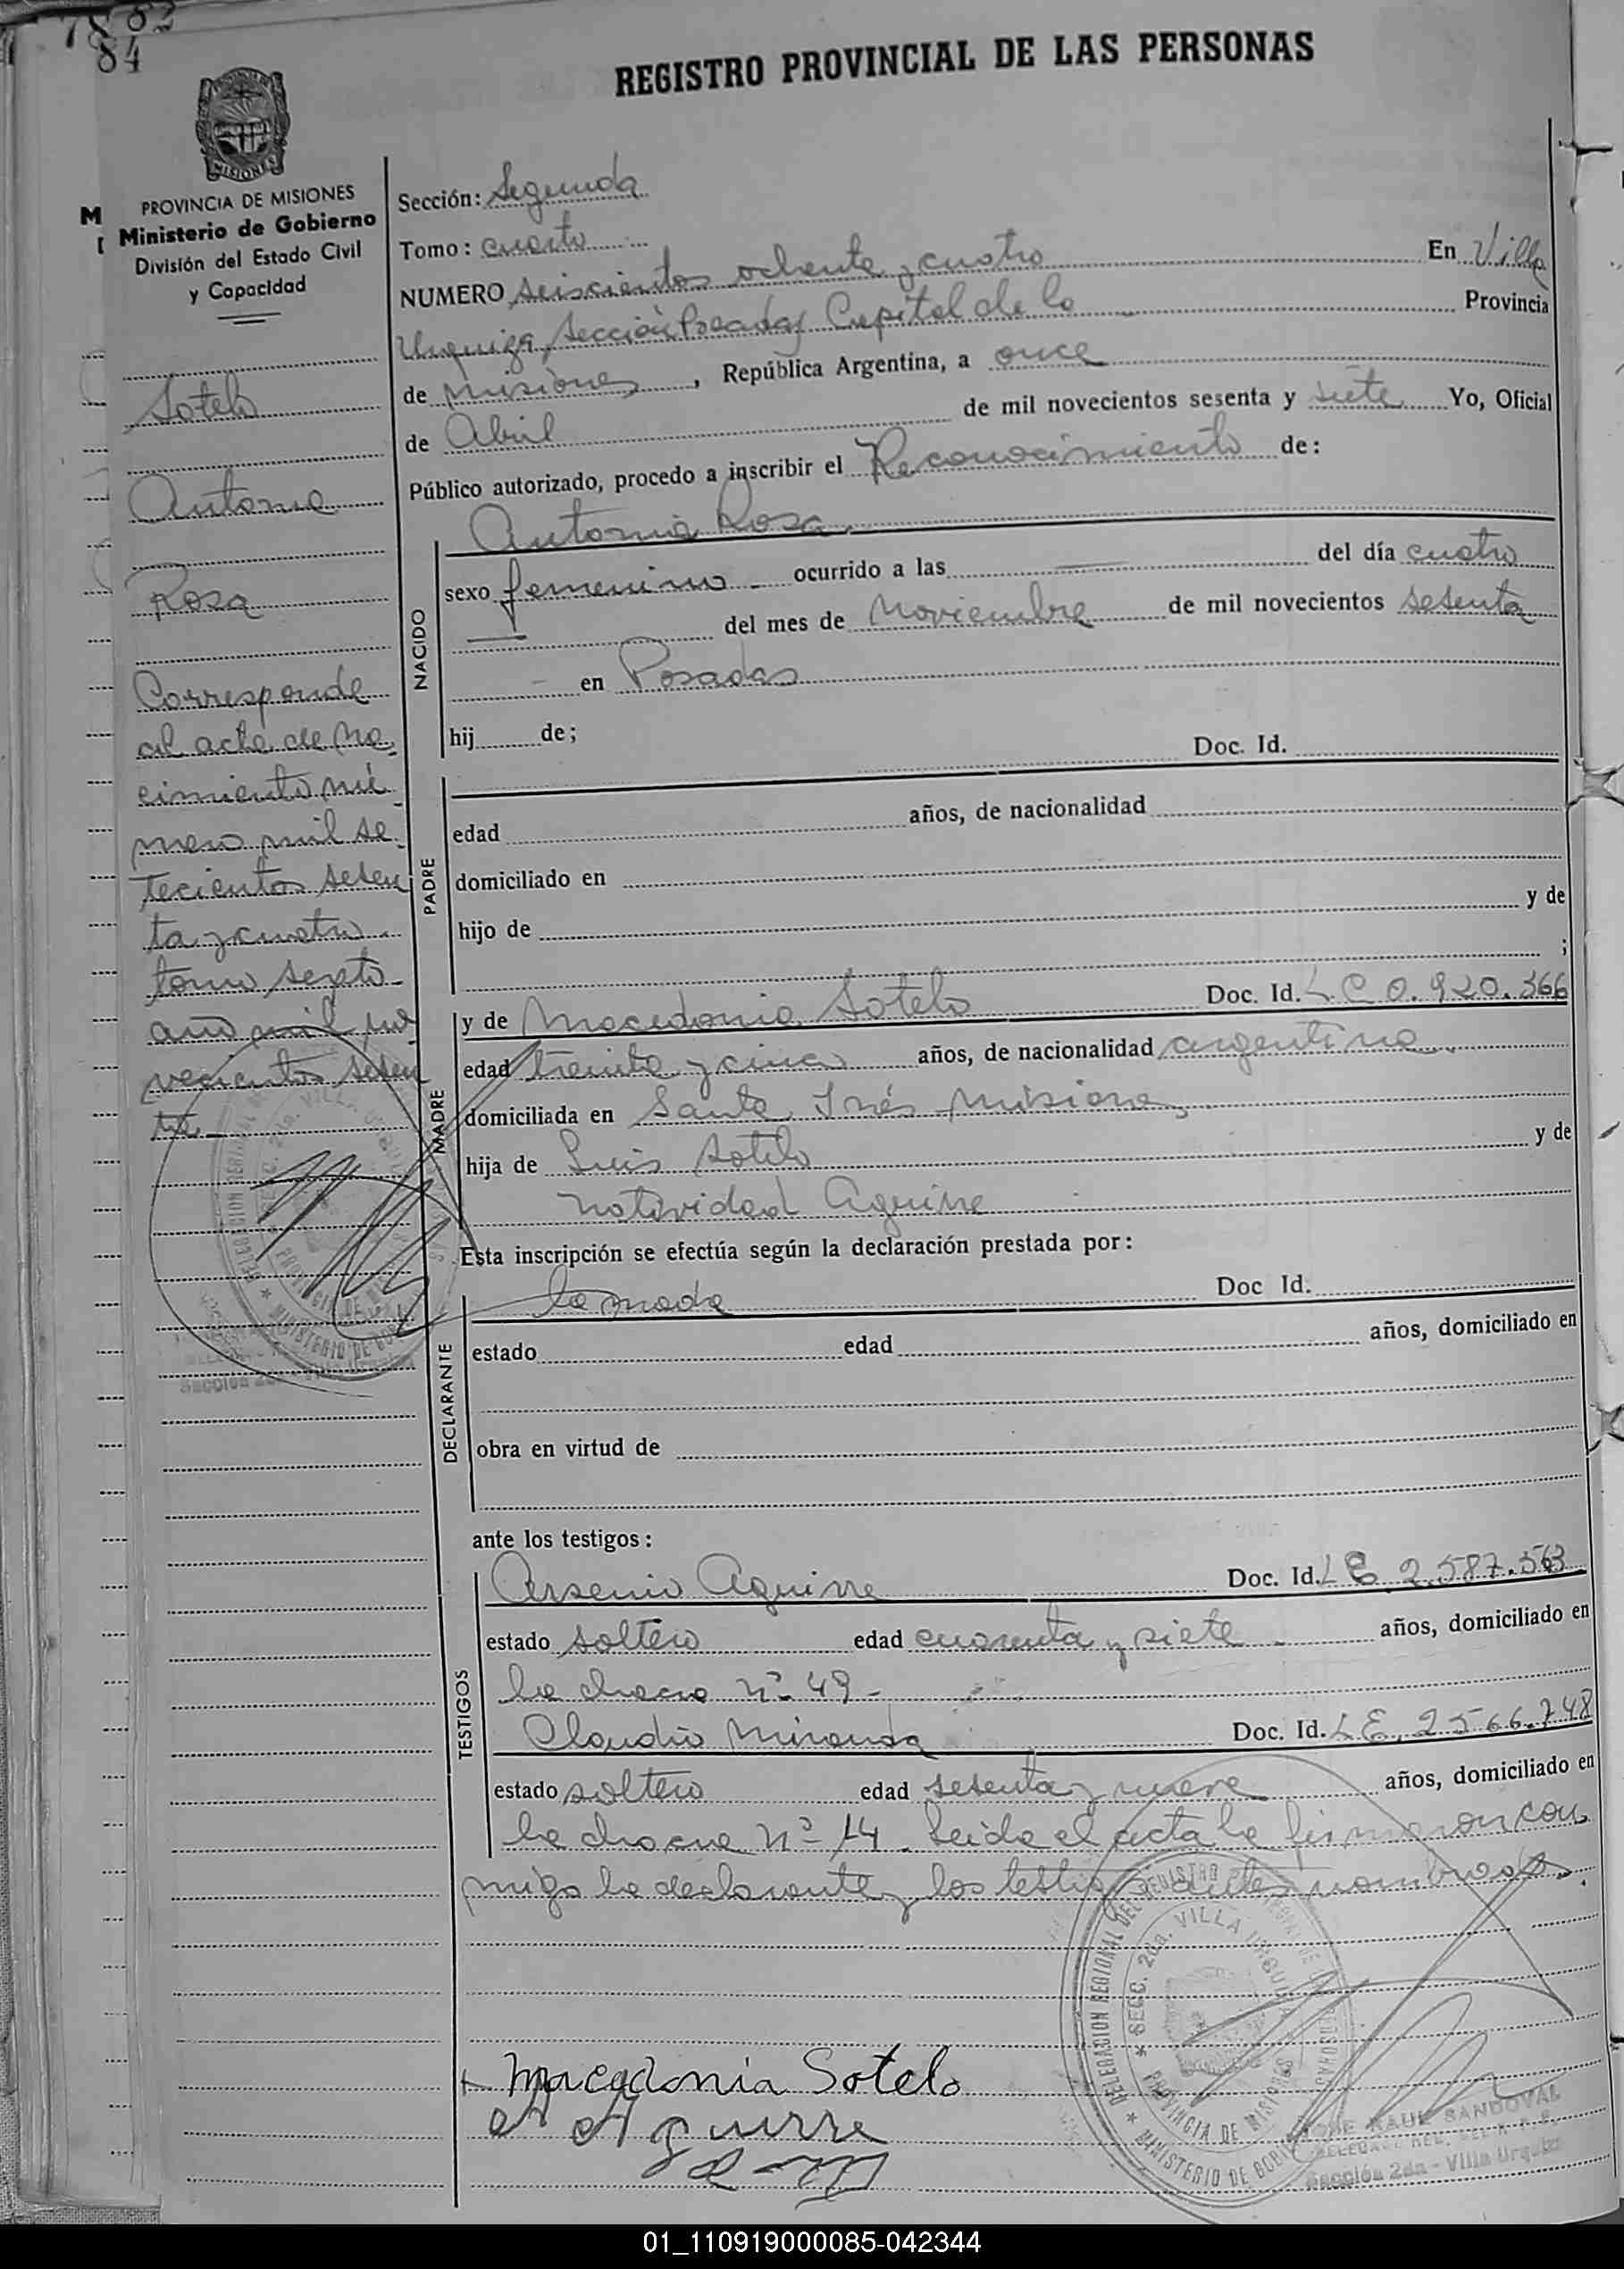 84
REGISTRO PROVINCIAL DE LAS PERSONAS
PROVINCIA DE MISIONES
Ministerio de Gobierno
División del Estado Civil
y Capacidad
Sotelo
Antonia
Rosa
Corresponde
al acta de na
cimiento nú
mero mil se
tecientos seten
ta y cuatro
tomo septo
año mil no
vecientos sesen
ta
Sección: Segunda
Tomo: cuarto
NUMERO seiscientos ochenta y cuatro En Villa
Urquiza, Sección Posadas Capital de la Provincia
de Misiones, República Argentina, a once
de Abril de mil novecientos sesenta y siete Yo, Oficial
Público autorizado, procedo a inscribir el Reconocimiento de:
Antonia Rosa
NACIDO
sexo femenino ocurrido a las del día cuatro
del mes de Noviembre de mil novecientos sesenta
en Posadas
hij de;
PADRE
Doc. Id.
edad años, de nacionalidad
domiciliado en
hijo de y de
;
MADRE
y de Macedonia Sotelo Doc. Id. L C 0.920.366
edad treinta y cinco años, de nacionalidad argentina
domiciliada en Santa Inés Misiones
hija de Luis Sotelo y de
Natividad Aguirre
Esta inscripción se efectúa según la declaración prestada por:
DECLARANTE
la madre Doc Id.
estado edad años, domiciliado en
obra en virtud de
ante los testigos:
TESTIGOS
Arsenio Aguirre Doc. Id. L E 2.587.563
estado soltero edad cuarenta y siete años, domiciliado en
la chacra nº 49
Claudio Miranda Doc. Id. L E. 2566.748
estado soltero edad sesenta y nueve años, domiciliado en
la chacra nº 14. Leida el acta la firmaron con
migo la declarante y los testigos antes nombrados.
Macedonia Sotelo
A Aguirre
DELEGACION REGIONAL DEL REGISTRO
SECC. 2da. VILLA URQUIZA
PROVINCIA DE MISIONES
MINISTERIO DE GOBIERNO
JOSE RAUL SANDOVAL
Sección 2da - Villa Urquiza
01_110919000085-042344